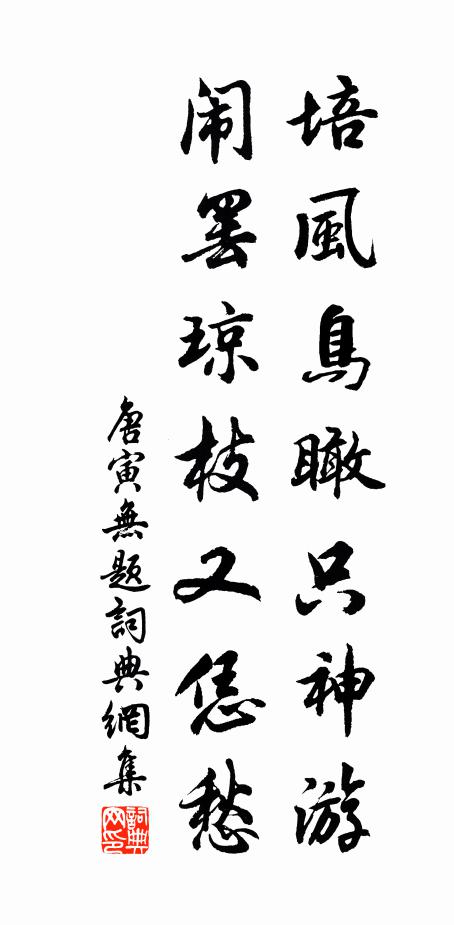 培風鳥瞰只神游
闹罢琼枝又恁愁
唐寅無題詞典網集
詞典网印